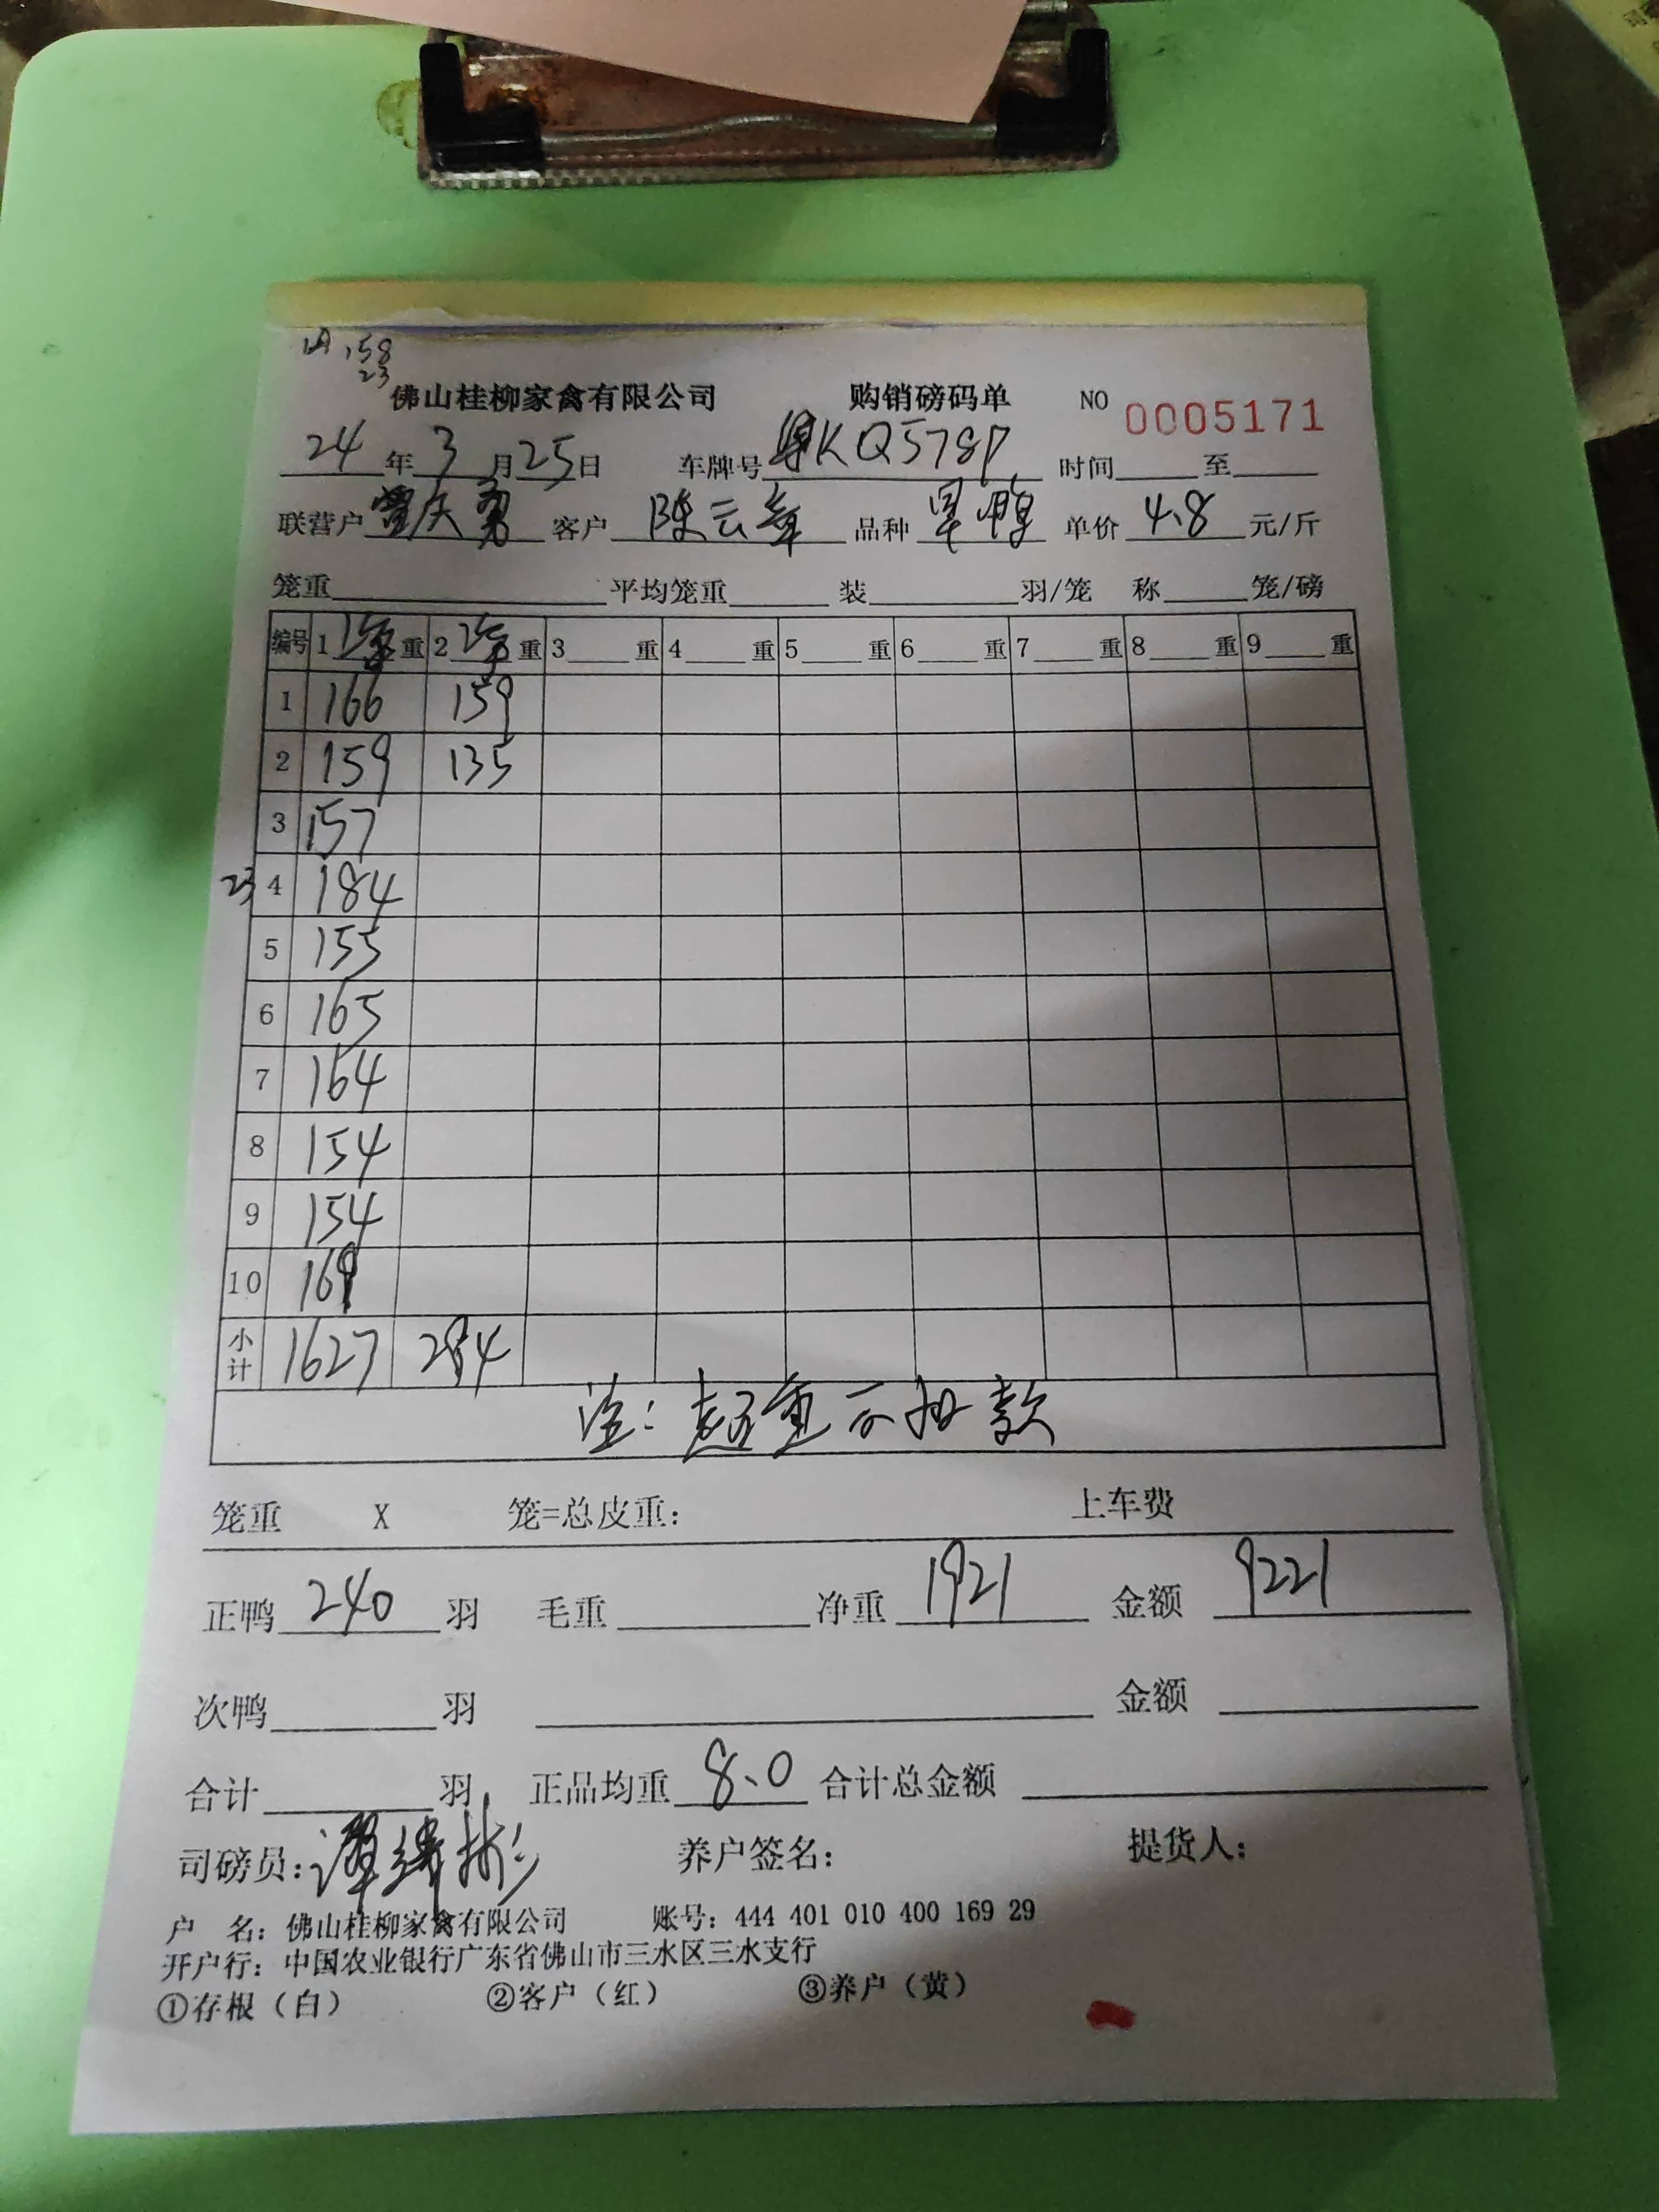 158
23
佛山桂柳家禽有限公司 购销磅码单 NO 0005171
24年3月25日 车牌号粤KQ5787 时间 至
联营户曹庆勇 客户陈云峰 品种旱鸭 单价4.8元/斤
笼重 平均笼重 装 羽/笼 称 笼/磅
编号 1 2笼重 2 2笼重 3 重 4 重 5 重 6 重 7 重 8 重 9 重
1 166 159
2 159 135
3 157
23 4 184
5 155
6 165
7 164
8 154
9 154
10 169
小计 1627 294
注:超重不扣款
笼重 X 笼=总皮重: 上车费
正鸭240羽 毛重 净重1921 金额9221
次鸭 羽 金额
合计 羽 正品均重8.0 合计总金额
司磅员:谭绪彬 养户签名: 提货人:
户 名:佛山桂柳家禽有限公司 账号:444 401 010 400 169 29
开户行:中国农业银行广东省佛山市三水区三水支行
①存根(白) ②客户(红) ③养户(黄)